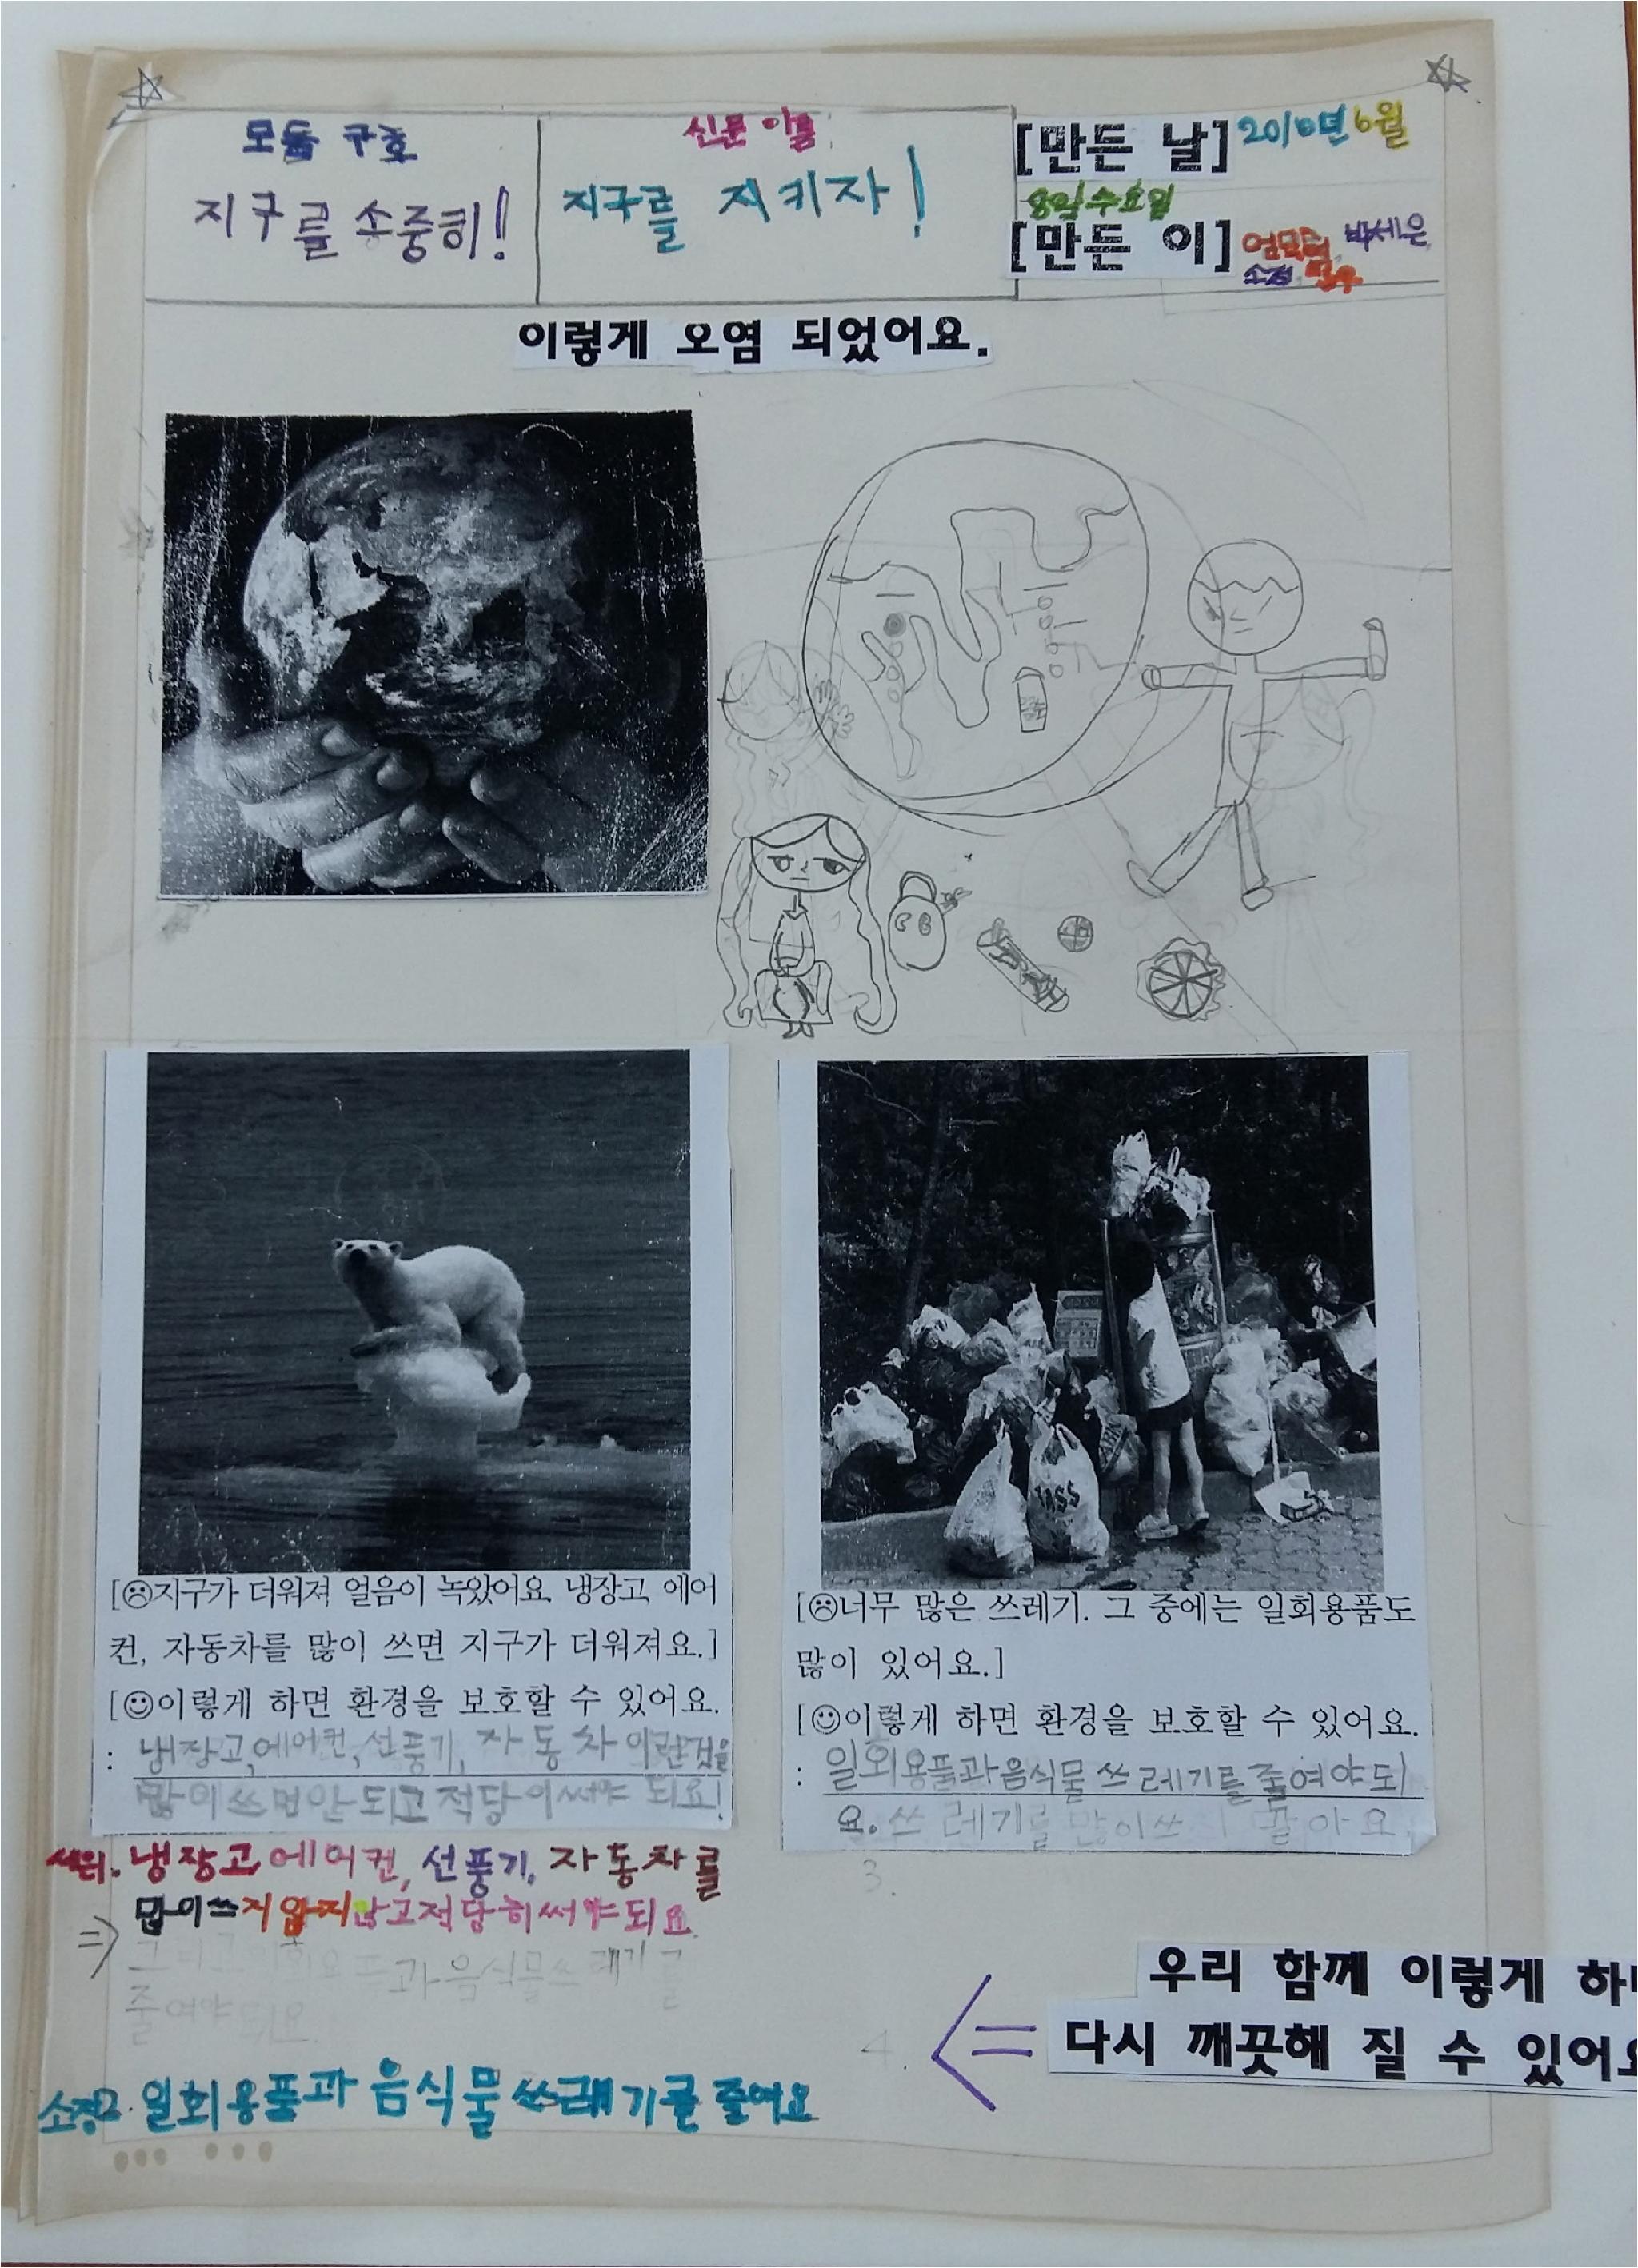 모둠 구호
지구를 소중히!
신문 이름
지구를 지키자!
[만든 날] 2016년 6월
8일 수요일
[만든 이] 박세은
소정
이렇게 오염 되었어요.
[☹지구가 더워져 얼음이 녹았어요. 냉장고, 에어
컨, 자동차를 많이 쓰면 지구가 더워져요.]
[☺이렇게 하면 환경을 보호할 수 있어요.
: 냉장고,에어컨,선풍기, 자동차 이런것을
많이쓰면안되고 적당이써야 되요!
[☹너무 많은 쓰레기. 그 중에는 일회용품도
많이 있어요.]
[☺이렇게 하면 환경을 보호할 수 있어요.
: 일회용품과음식물 쓰레기를 줄여야되
요. 쓰레기를 많이쓰
냉장고에어컨, 선풍기, 자동차를
많이쓰지 않고적당히써야되요
⇒
과음식물쓰레기를
줄여야되요.
3.
4.
⇐ 우리 함께 이렇게 하
다시 깨끗해 질 수 있어요
소정2. 일회용품과 음식물 쓰레기를 줄여요